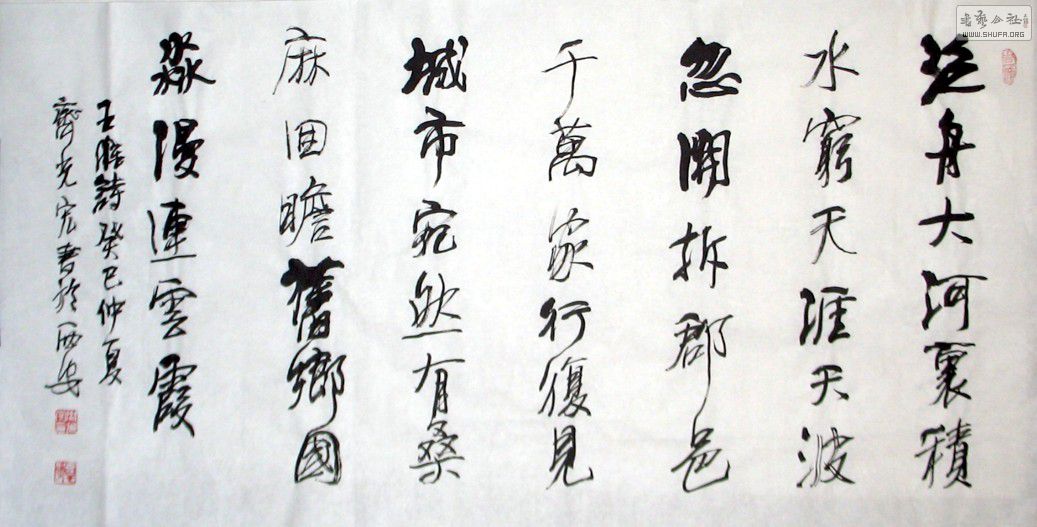 泛舟大河裏積
水窮天涯天波
忽開拆郡邑
千萬家行復見
城市宛然有桑
麻回瞻舊鄉國
淼漫連雲霞
王維詩癸巳仲夏
齊光宏書於西安
书艺公社
WWW.SHUFA.ORG